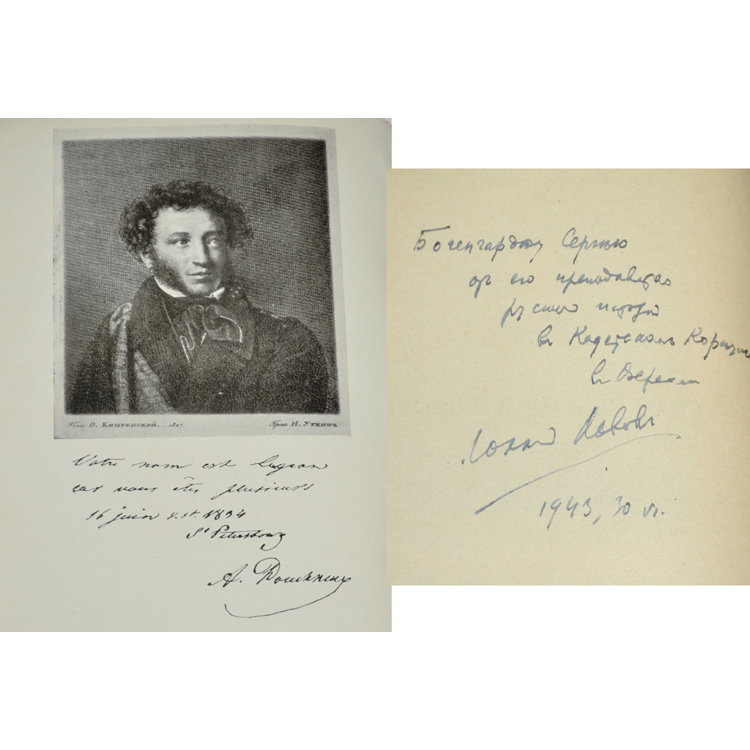 Пис. О. Кипренской. 1827 Грав. Н. Уткинъ
Votre nom est légion
car vous êtes plusieurs
16 juin v.st. 1834
St Petersbourg
A. Pouchkine
Богенгардту Сергею
от его преподавателя
русской истории
в Кадетском Корпусе
в Версали
1943, 30 VI.